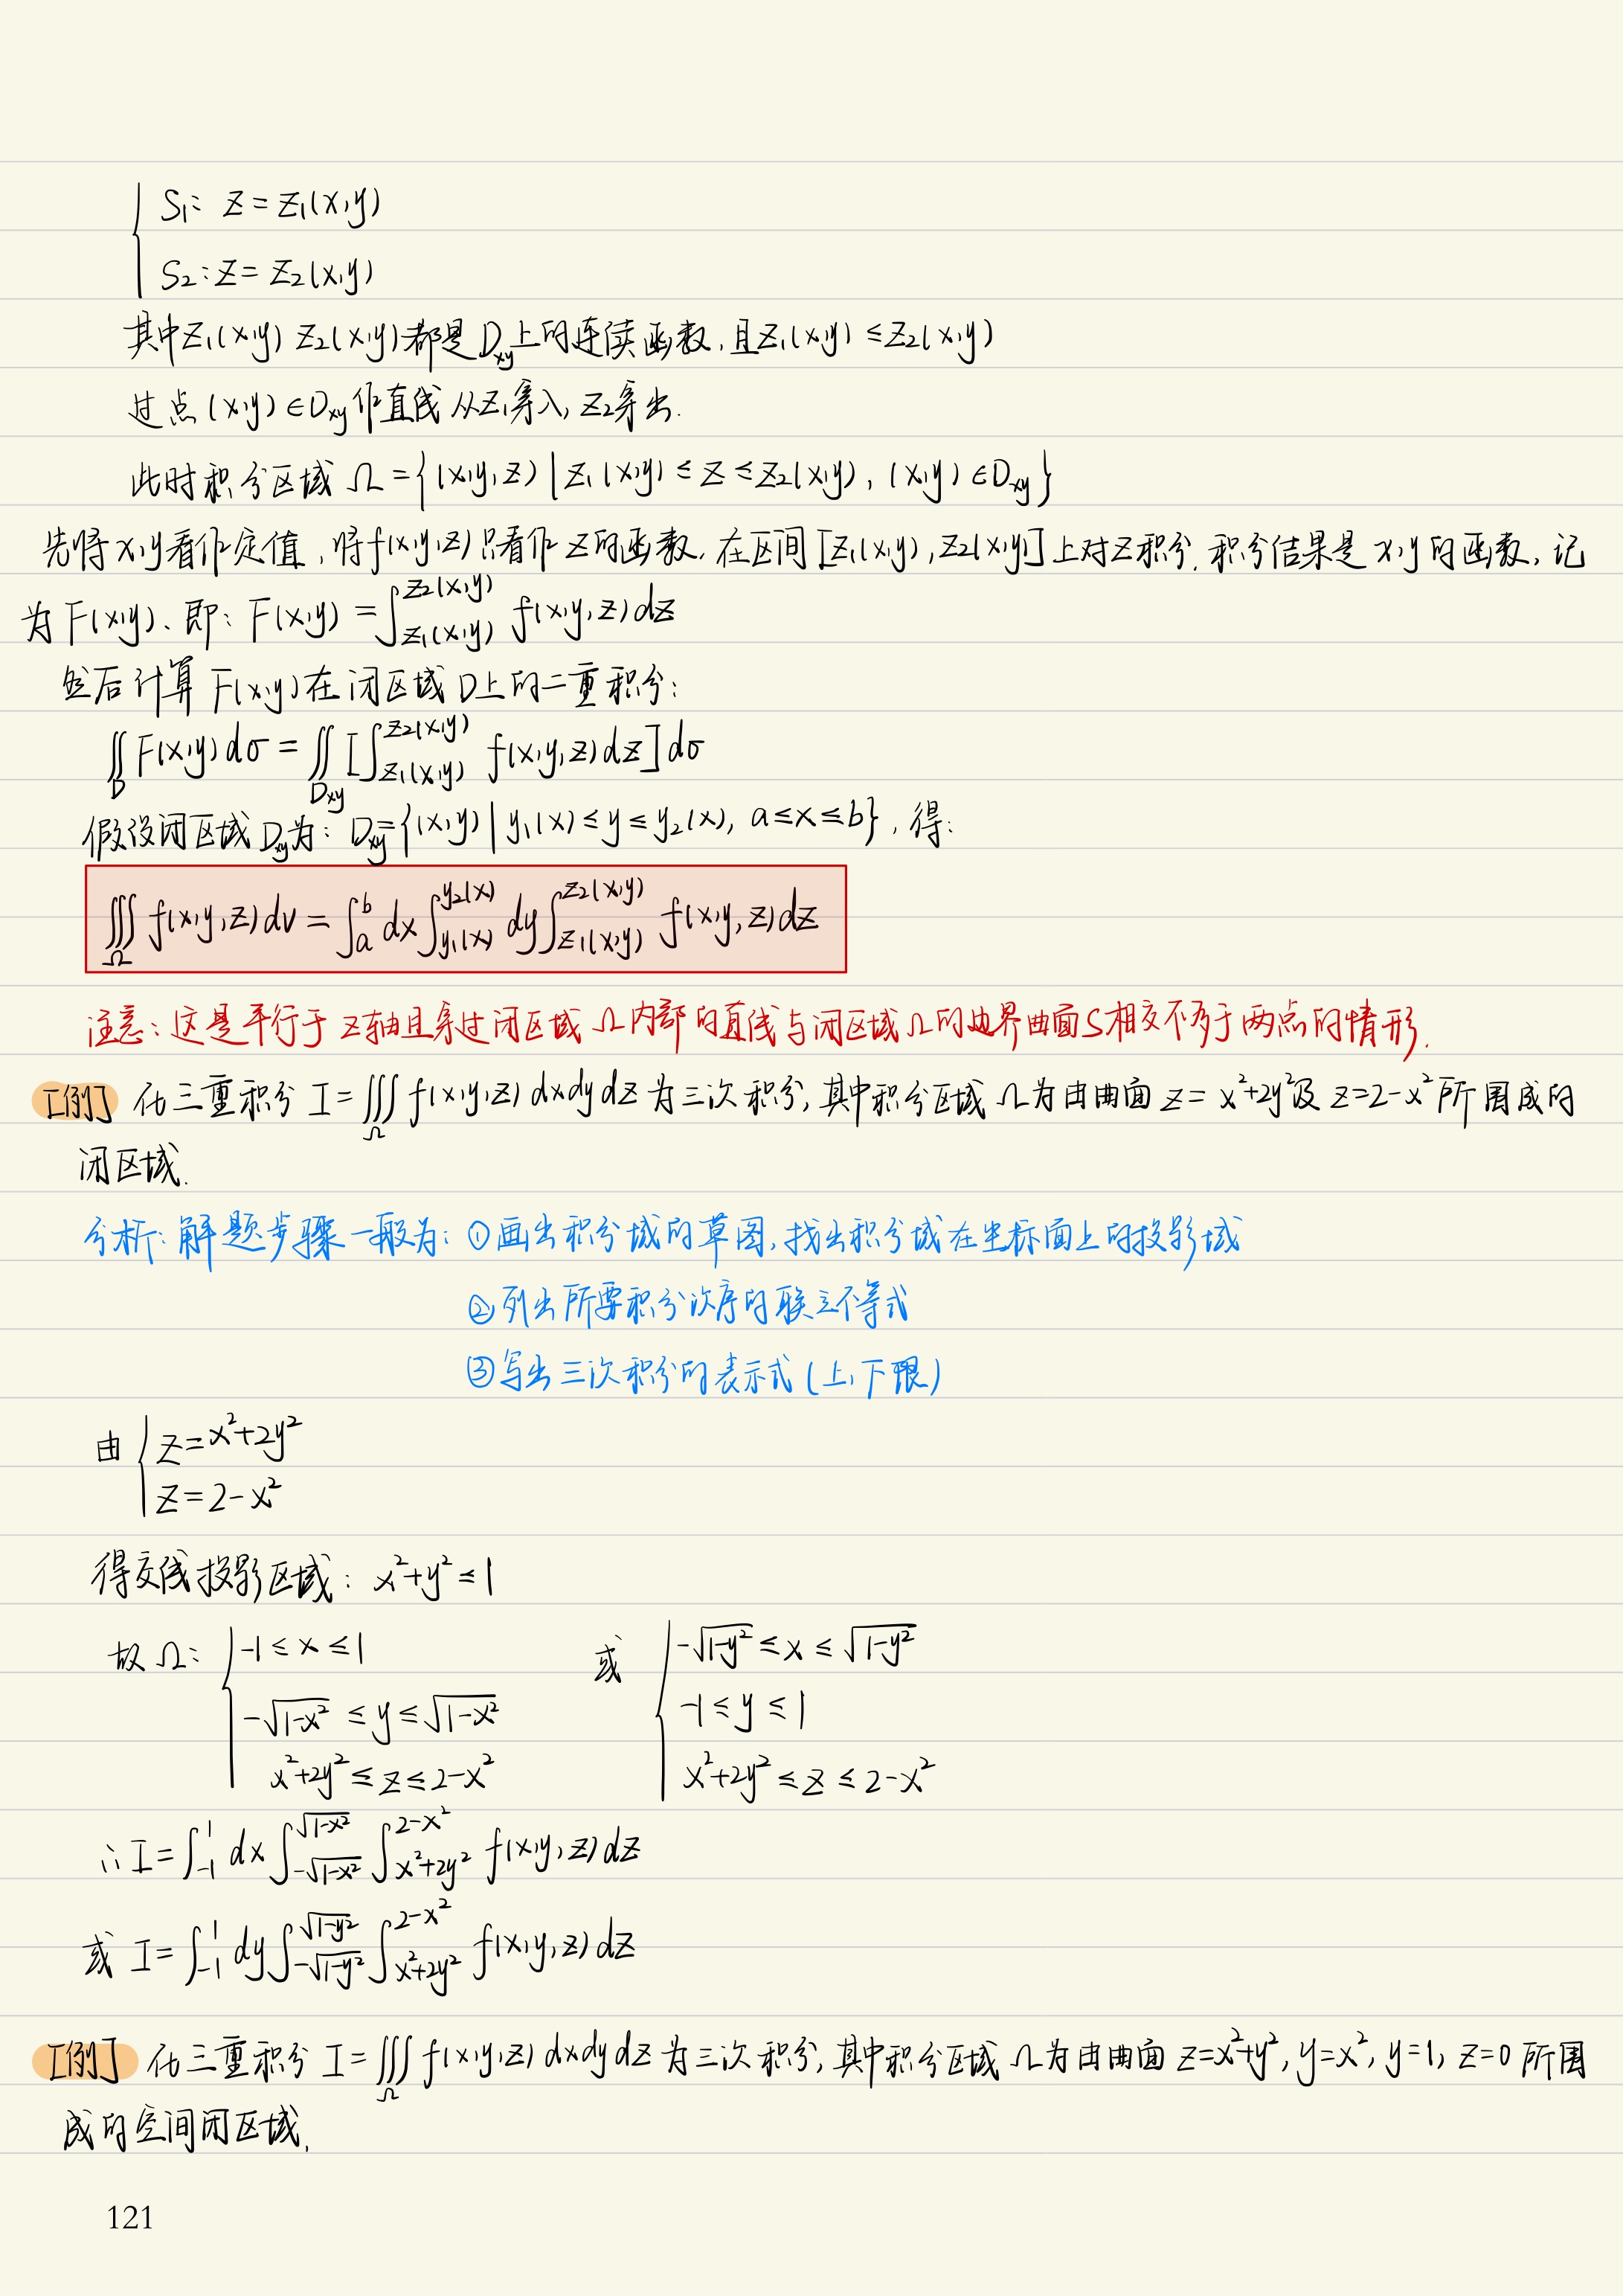 { S₁: z = z₁(x,y)
S₂: z = z₂(x,y)
其中z₁(x,y) z₂(x,y)都是Dxy上的连续函数,且z₁(x,y) ≤ z₂(x,y)
过点(x,y)∈Dxy作直线从z₁穿入, z₂穿出.
此时积分区域 Ω = {(x,y,z) | z₁(x,y) ≤ z ≤ z₂(x,y), (x,y)∈Dxy}
先将x,y看作定值,将f(x,y,z)只看作z的函数,在区间[z₁(x,y), z₂(x,y)]上对z积分.积分结果是x,y的函数,记
为F(x,y)、即: F(x,y) = ∫_{z₁(x,y)}^{z₂(x,y)} f(x,y,z)dz
然后计算F(x,y)在闭区域D上的二重积分:
∬_D F(x,y)dσ = ∬_{Dxy} [∫_{z₁(x,y)}^{z₂(x,y)} f(x,y,z)dz]dσ
假设闭区域Dxy为: Dxy={(x,y) | y₁(x) ≤ y ≤ y₂(x), a≤x≤b}, 得:
∭_Ω f(x,y,z)dv = ∫_a^b dx ∫_{y₁(x)}^{y₂(x)} dy ∫_{z₁(x,y)}^{z₂(x,y)} f(x,y,z)dz
注意:这是平行于z轴且穿过闭区域Ω内部的直线与闭区域Ω的边界曲面S相交不多于两点的情形.
[例] 化三重积分 I=∭_Ω f(x,y,z) dxdydz 为三次积分,其中积分区域Ω为由曲面 z = x²+2y²及 z=2-x²所围成的
闭区域.
分析:解题步骤一般为: ①画出积分域的草图,找出积分域在坐标面上的投影域
②列出所要积分次序的联立不等式
③写出三次积分的表示式(上、下限)
由 { z = x²+2y²
z = 2-x²
得交线投影区域: x²+y² ≤ 1
故Ω: { -1 ≤ x ≤ 1 或 { -√(1-y²) ≤ x ≤ √(1-y²)
-√(1-x²) ≤ y ≤ √(1-x²) -1 ≤ y ≤ 1
x²+2y² ≤ z ≤ 2-x² x²+2y² ≤ z ≤ 2-x²
∴ I = ∫_{-1}^{1} dx ∫_{-√(1-x²)}^{√(1-x²)} ∫_{x²+2y²}^{2-x²} f(x,y,z)dz
或 I = ∫_{-1}^{1} dy ∫_{-√(1-y²)}^{√(1-y²)} ∫_{x²+2y²}^{2-x²} f(x,y,z)dz
[例] 化三重积分 I=∭_Ω f(x,y,z) dxdydz 为三次积分,其中积分区域Ω为由曲面 z=x²+y², y=x², y=1, z=0 所围
成的空间闭区域.
121